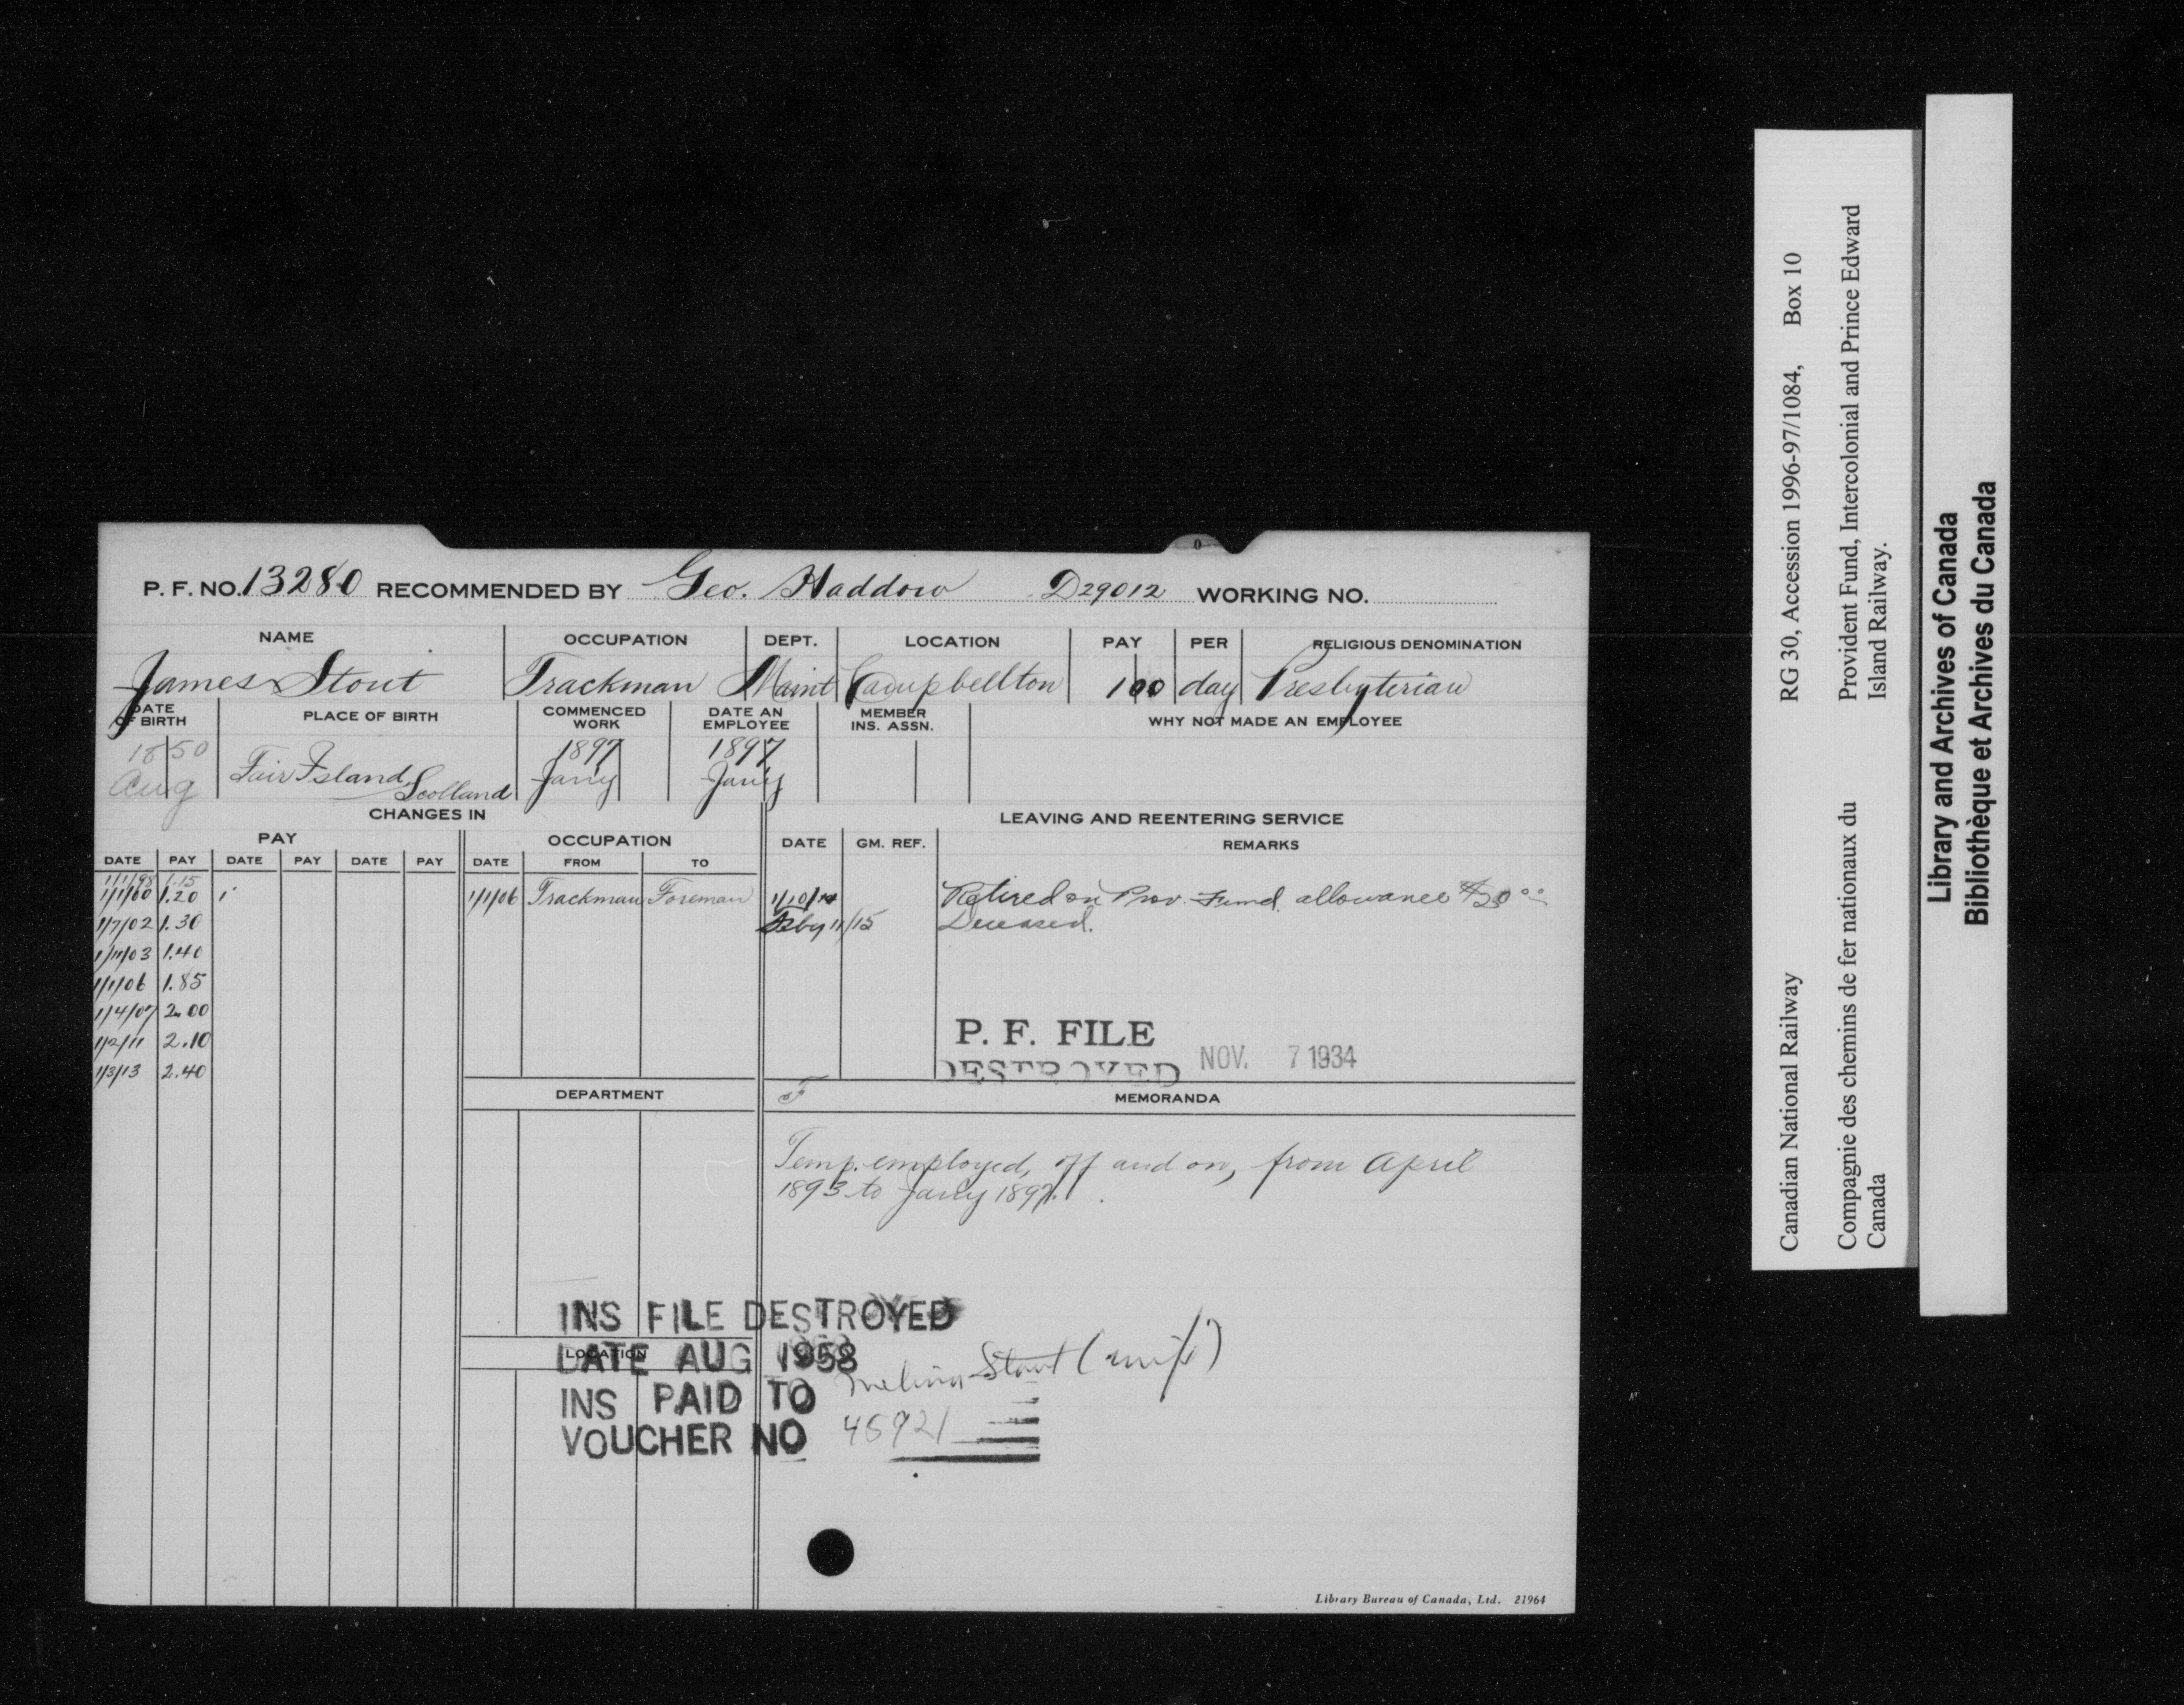 P. F. NO. 13280 RECOMMENDED BY Geo. Haddow D29012 WORKING NO.
NAME OCCUPATION DEPT. LOCATION PAY PER RELIGIOUS DENOMINATION
James Stout Trackman Maint Campbellton 1 00 day Presbyterian
DATE OF BIRTH PLACE OF BIRTH COMMENCED WORK DATE AN EMPLOYEE MEMBER INS. ASSN. WHY NOT MADE AN EMPLOYEE
1850 Aug Fair Island, Scotland 1897 Jany 1897 Jany
CHANGES IN LEAVING AND REENTERING SERVICE
PAY OCCUPATION DATE GM. REF. REMARKS
DATE PAY DATE PAY DATE PAY DATE FROM TO
1/1/98 1.15
1/1/00 1.20 1/1/06 Trackman Foreman 1/10/14 Retired on Prov. Fund allowance $20 00
1/7/02 1.30 Feby 11/15 Deceased.
1/11/03 1.40
1/1/06 1.85
1/4/07 2.00
1/2/11 2.10
1/3/13 2.40
P. F. FILE
DESTROYED NOV. 7 1934
DEPARTMENT F MEMORANDA
Temp. employed, off and on, from April
1893 to Jany 1897.
INS FILE DESTROYED
DATE AUG 1958
LOCATION
INS PAID TO Stout (wife)
VOUCHER NO 45921
Library Bureau of Canada, Ltd. 21964
Canadian National Railway RG 30, Accession 1996-97/1084, Box 10
Compagnie des chemins de fer nationaux du Canada
Provident Fund, Intercolonial and Prince Edward Island Railway.
Library and Archives of Canada
Bibliothèque et Archives du Canada